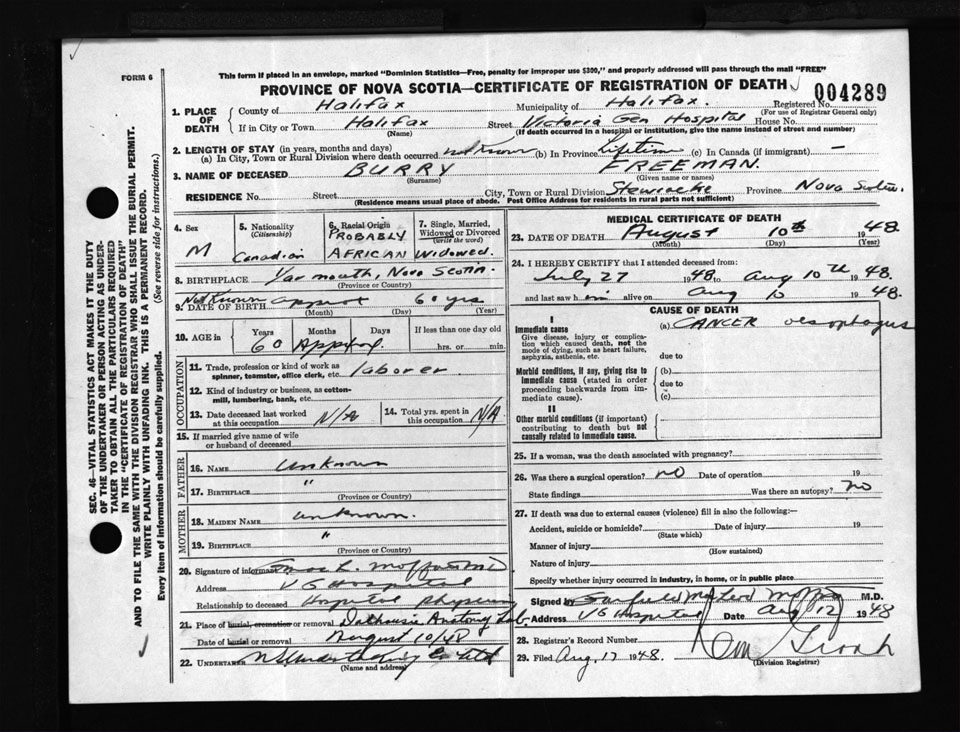 FORM 6
This form if placed in an envelope, marked "Dominion Statistics—Free, penalty for improper use $300," and properly addressed will pass through the mail "FREE"
PROVINCE OF NOVA SCOTIA—CERTIFICATE OF REGISTRATION OF DEATH
004289
1. PLACE OF DEATH
County of Halifax Municipality of Halifax. Registered No.
(For use of Registrar General only)
If in City or Town Halifax Street Victoria Gen Hospital House No.
(Name) (If death occurred in a hospital or institution, give the name instead of street and number)
2. LENGTH OF STAY (in years, months and days)
(a) In City, Town or Rural Division where death occurred not Known (b) In Province Lifetime (c) In Canada (if immigrant) —
3. NAME OF DECEASED BURRY FREEMAN.
(Surname) (Given name or names)
RESIDENCE No. Street City, Town or Rural Division Stewiacke Province Nova Scotia.
(Residence means usual place of abode. Post Office Address for residents in rural parts not sufficient)
4. Sex M
5. Nationality (Citizenship) Canadian
6. Racial Origin PROBABLY AFRICAN
7. Single, Married, Widowed or Divorced (Write the word) Widowed
8. BIRTHPLACE Yarmouth, Nova Scotia.
(Province or Country)
9. DATE OF BIRTH Not Known approx 60 yrs
(Month) (Day) (Year)
10. AGE in Years Months Days If less than one day old
60 Approx. hrs. or min.
OCCUPATION
11. Trade, profession or kind of work as spinner, teamster, office clerk, etc. laborer
12. Kind of industry or business, as cotton-mill, lumbering, bank, etc.
13. Date deceased last worked at this occupation N/A
14. Total yrs. spent in this occupation N/A
15. If married give name of wife or husband of deceased
FATHER
16. NAME unknown
17. BIRTHPLACE "
(Province or Country)
MOTHER
18. MAIDEN NAME unknown.
19. BIRTHPLACE "
(Province or Country)
20. Signature of informant
Address V G Hospital
Relationship to deceased Hospital Physician
21. Place of burial, cremation or removal Dalhousie Anatomy Lab.
Date of burial or removal August 10/48
22. UNDERTAKER N S Undertaking Co Ltd
(Name and address)
MEDICAL CERTIFICATE OF DEATH
23. DATE OF DEATH August 10th 1948
(Month) (Day) (Year)
24. I HEREBY CERTIFY that I attended deceased from
July 27 1948 to Aug 10th 1948.
and last saw him alive on Aug 10 1948.
CAUSE OF DEATH
I
Immediate cause (a) CANCER oesophagus
Give disease, injury or complication which caused death, not the mode of dying, such as heart failure, asphyxia, asthenia, etc.
due to
Morbid conditions, if any, giving rise to immediate cause (stated in order proceeding backwards from immediate cause).
(b)
due to
(c)
II
Other morbid conditions (if important) contributing to death but not causally related to immediate cause.
25. If a woman, was the death associated with pregnancy?
26. Was there a surgical operation? no Date of operation 19
State findings Was there an autopsy? no
27. If death was due to external causes (violence) fill in also the following:—
Accident, suicide or homicide? Date of injury 19
(State which)
Manner of injury
(How sustained)
Nature of injury
Specify whether injury occurred in industry, in home, or in public place
Signed by Garfield McLeod M.D.
V G Hospital Date Aug 12 1948
28. Registrar's Record Number
29. Filed Aug. 17 1948.
(Division Registrar)
SEC. 46—VITAL STATISTICS ACT MAKES IT THE DUTY
OF THE UNDERTAKER OR PERSON ACTING AS UNDER-
TAKER TO OBTAIN ALL THE PARTICULARS REQUIRED
IN THE "CERTIFICATE OF REGISTRATION OF DEATH"
AND TO FILE THE SAME WITH THE DIVISION REGISTRAR WHO SHALL ISSUE THE BURIAL PERMIT.
WRITE PLAINLY WITH UNFADING INK. THIS IS A PERMANENT RECORD.
Every item of information should be carefully supplied. (See reverse side for instructions.)